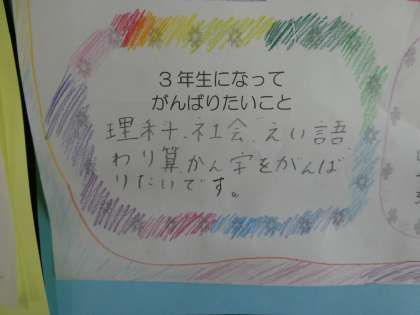 3年生になって
がんばりたいこと
理科、社会、えい語、
わり算、かん字をがんば
りたいです。